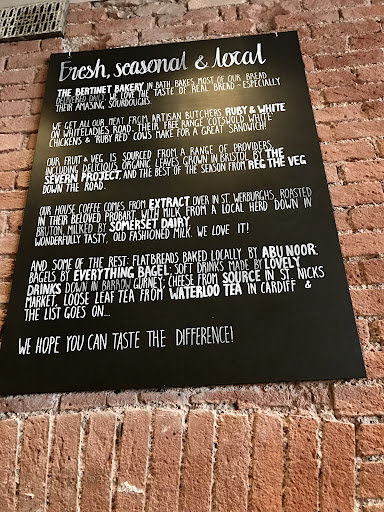 Fresh, seasonal & local
THE BERTINET BAKERY IN BATH BAKES MOST OF OUR BREAD
DELIVERED DAILY. WE LOVE THE TASTE OF REAL BREAD - ESPECIALLY
THEIR AMAZING SOURDOUGHS.
WE GET ALL OUR MEAT FROM ARTISAN BUTCHERS RUBY & WHITE
ON WHITELADIES ROAD. THEIR FREE RANGE 'COTSWOLD WHITE'
CHICKENS & 'RUBY RED' COWS MAKE FOR A GREAT SANDWICH!
OUR FRUIT & VEG IS SOURCED FROM A RANGE OF PROVIDERS
INCLUDING DELICIOUS ORGANIC LEAVES GROWN IN BRISTOL BY THE
SEVERN PROJECT, AND THE BEST OF THE SEASON FROM REG THE VEG
DOWN THE ROAD.
OUR HOUSE COFFEE COMES FROM EXTRACT OVER IN ST. WERBURGHS, ROASTED
IN THEIR BELOVED PROBART, WITH MILK FROM A LOCAL HERD DOWN IN
BRUTON, MILKED BY SOMERSET DAIRY.
WONDERFULLY TASTY, OLD FASHIONED MILK. WE LOVE IT!
AND SOME OF THE REST: FLATBREADS BAKED LOCALLY BY ABU NOOR;
BAGELS BY EVERYTHING BAGEL; SOFT DRINKS MADE BY LOVELY
DRINKS DOWN IN BARROW GURNEY; CHEESE FROM SOURCE IN ST. NICKS
MARKET, LOOSE LEAF TEA FROM WATERLOO TEA IN CARDIFF &
THE LIST GOES ON...
WE HOPE YOU CAN TASTE THE DIFFERENCE!